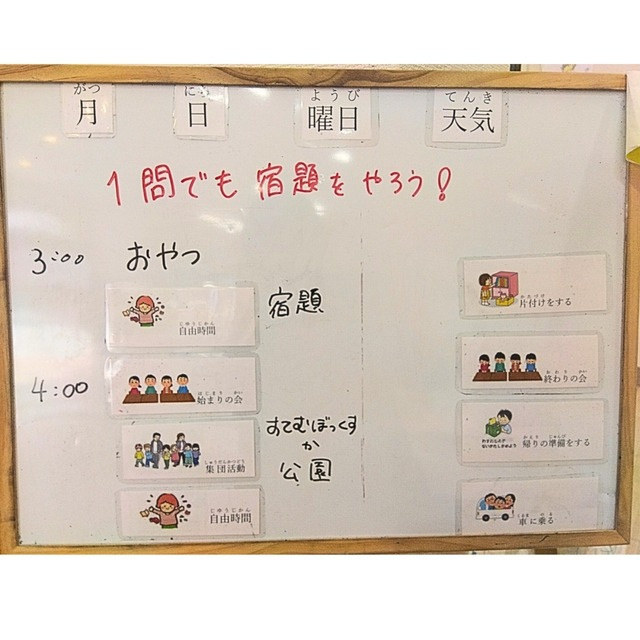 がつ
月
にち
日
ようび
曜日
てんき
天気
1問でも宿題をやろう!
3:00 おやつ
じゆうじかん
自由時間
宿題
4:00
はじまり かい
始まりの会
しゅうだんかつどう
集団活動
すてむぼっくす
か
公園
じゆうじかん
自由時間
かたづけ
片付けをする
おわり かい
終わりの会
かえり じゅんび
帰りの準備をする
くるま のる
車に乗る